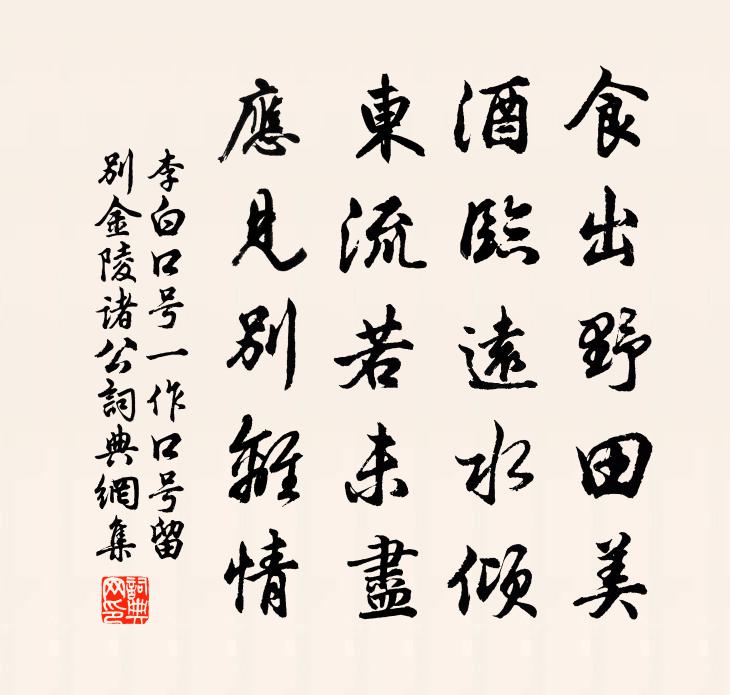 食出野田美
酒臨遠水傾
東流若未盡
應見別離情
李白口号一作口号留
別金陵諸公詞典網集
詞典網印